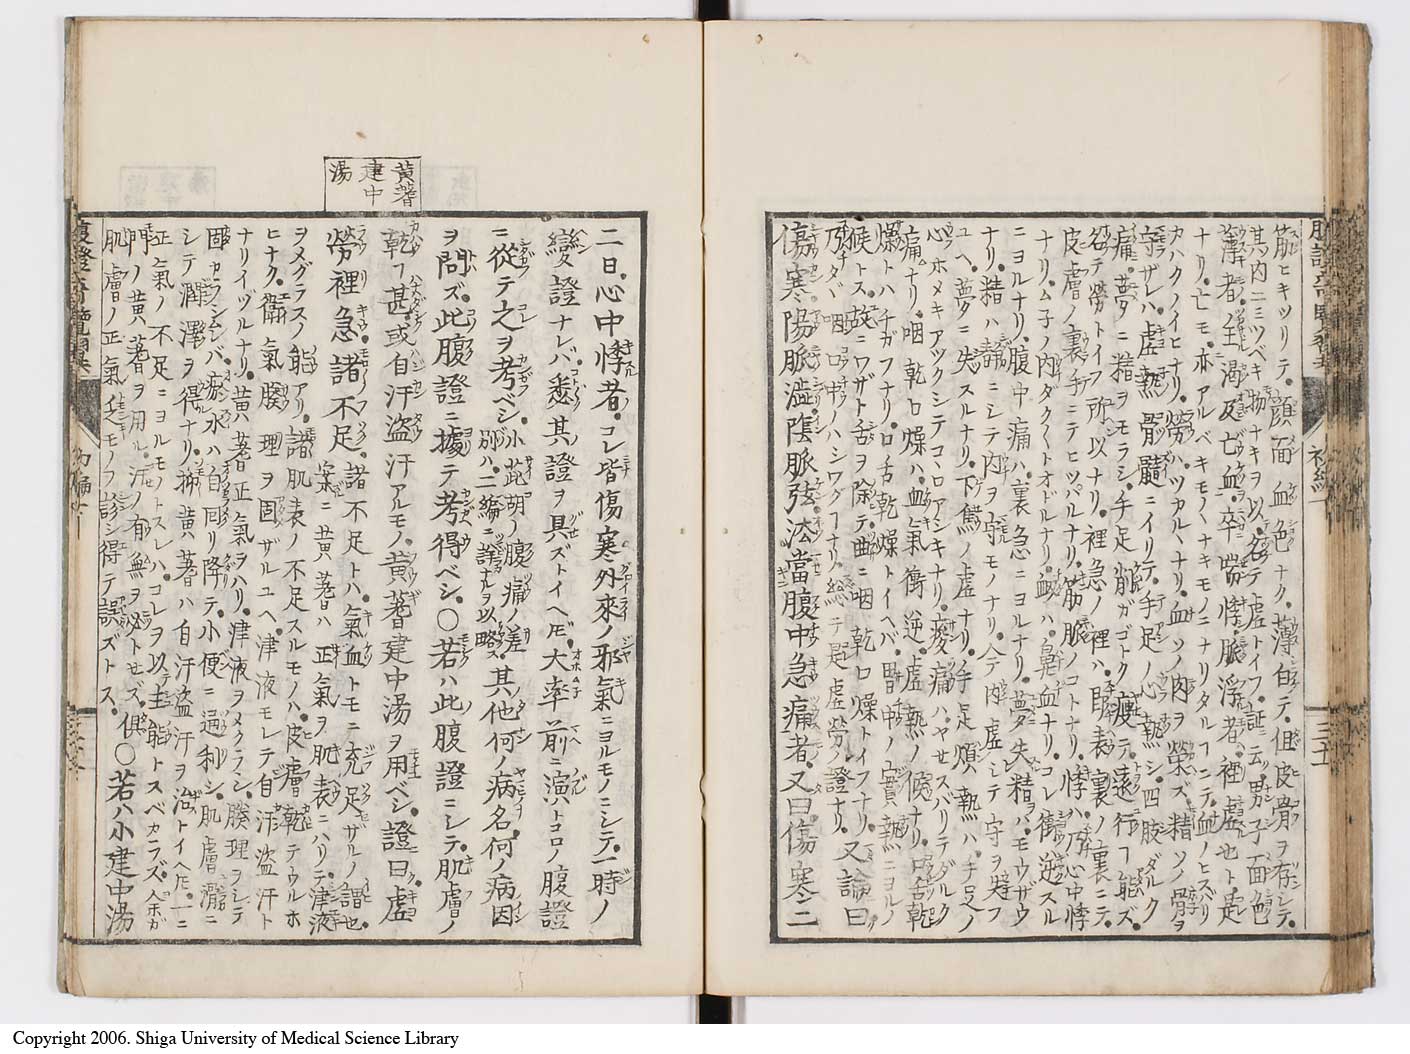 筋ヒキツリテ。顔面血色ナク。薄白テ。但皮骨ヲ存シテ。
其内ニミツベキ物ナキヲ以。名テ虚トイフ。証ニ云男子面色
薄者。主渇及亡血。卒喘悸。脈浮者。裡虚也ト。是
ナリ。亡モ。亦アルベキモノヽナキモノニナリタルヿニテ。血ノヒズバリ
カハクノイヒナリ。勞ハ。ツカルヽナリ。血ソノ内ヲ榮ズ。精ソノ骨ヲ
守ザレハ。虚熱骨髓ニイリテ。手足ノ心熱シ。四肢ダルク
痛。夢ニ精ヲモラシ。手足削ガゴトク瘦テ。遠行ヿ能ズ。
名テ勞トイフ所以ナリ。裡急ノ裡ハ。即表裏ノ裏ニテ。
皮膚ノ裏手ニテヒツパルナリ。筋脈ノコトナリ。悸ハ乃心中悸
ナリ。ムネノ内タクタクトオドルナリ。衂ハ。鼻血ナリ。コレ衝逆スル
ニヨルナリ。腹中痛ハ。裏急ニヨルナリ。夢失精ハ。モウザウ
ナリ。精ハ静ニシテ内ヲ守モノナリ。今内虚シテ守ヲ失フ
ユヘ。夢ニ失スルナリ。下焦ノ虚ナリ。手足煩熱ハ。手足ノ
心ホメキアツクシテコヽロアシキナリ。痠痛ハ。ヤせスバリテダルク
痛ナリ。咽乾口燥ハ。血氣衝逆。虚熱ノ候ナリ。口舌乾
燥トハ。チガフナリ。口舌乾燥トイヘバ。胃中ノ實熱ニヨルノ
候トス。故ニワザト舌ヲ除テ。曲ニ咽乾口燥トイフナリ。
乃チタヾ咽ト口中ノハシワグヿナリ。総テ是虚勞ノ證ナリ。又論曰
傷寒陽脈濇。陰脈弦。法當腹中急痛者。又曰傷寒二
黄蓍
建中
湯
二日。心中悸者。コレ皆傷寒外來ノ邪氣ニヨルモノニシテ。一時ノ
變證ナレバ。悉其證ヲ具ズトイヘ𪜈。大率前ニ演トコロノ腹證
ニ從テ之ヲ考ベシ。小茈胡ノ腹痛ノ差別ハ。二編ニ詳ナルヲ以略ス。其他何ノ病名何ノ病因
ヲ問ズ。此腹證ニ據テ考得ベシ。〇若ハ此腹證ニシテ。肌膚ノ
乾ヿ甚。或自汗盗汗アルモノ。黄蓍建中湯ヲ用ベシ。證曰虚
勞裡急。諸不足。諸不足トハ。氣血トモニ充足せザルノ謂也。案ニ黄蓍ハ正氣ヲ肌表ニハリテ。津液
ヲメグラスノ能アリ。諸肌表ノ不足スルモノハ。皮膚乾テウルホ
ヒナク。衛氣腠理ヲ固ザルユヘ。津液モレテ自汗盗汗ト
ナリイヅルナリ。黄蓍正氣ヲハリ。津液ヲメクラシ。腠理ヲシテ
固カラシムレバ。瘀水ハ自回リ降テ。小便ニ通利シ。肌膚ハ
シテ潤澤ヲ得ルナリ。抑黄蓍ハ自汗盗汗ヲ治トイヘ𪜈。一ニ
正氣ノ不足ニヨルモノトスレハ。コレヲ以主能トスベカラズ。余カ
門ノ黄蓍ヲ用ル。汗ノ有無ヲ必トせズ。倶
肌膚ノ正氣乏モノヲ診シ得テ誤ズトス。〇若ハ小建中湯
初編
三十五